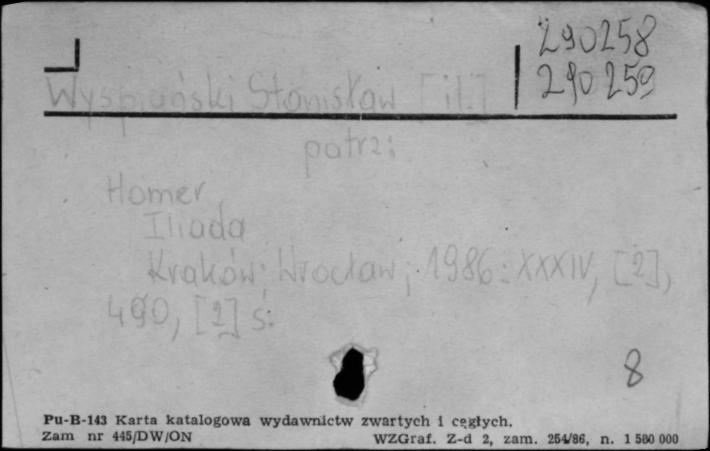 290258
290259
Wyspiański Stanisław [il.]
patrz:
Homer
Iliada
Kraków; Wrocław; 1986: XXXIV, [2],
490, [2] s.
8
Pu-B-143 Karta katalogowa wydawnictw zwartych i cęgłych.
Zam nr 445/DW/ON WZGraf. Z-d 2, zam. 254/86, n. 1 500 000